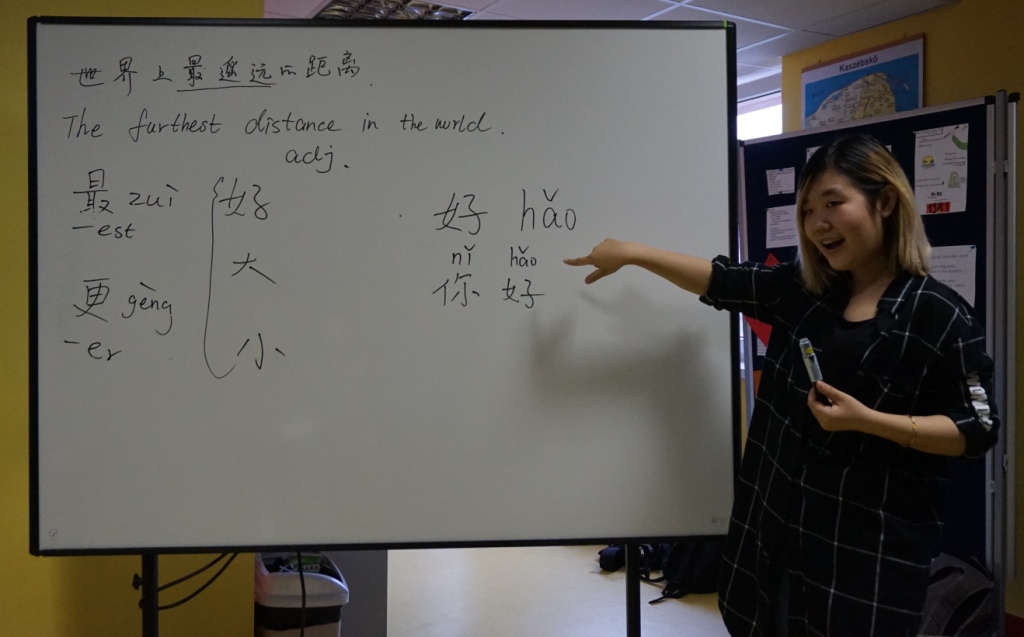 世界上最遥远的距离.
The furthest distance in the world.
adj.
最 zuì
-est
更 gèng
-er
好
大
小
好 hǎo
nǐ hǎo
你 好
Kaszëbskô